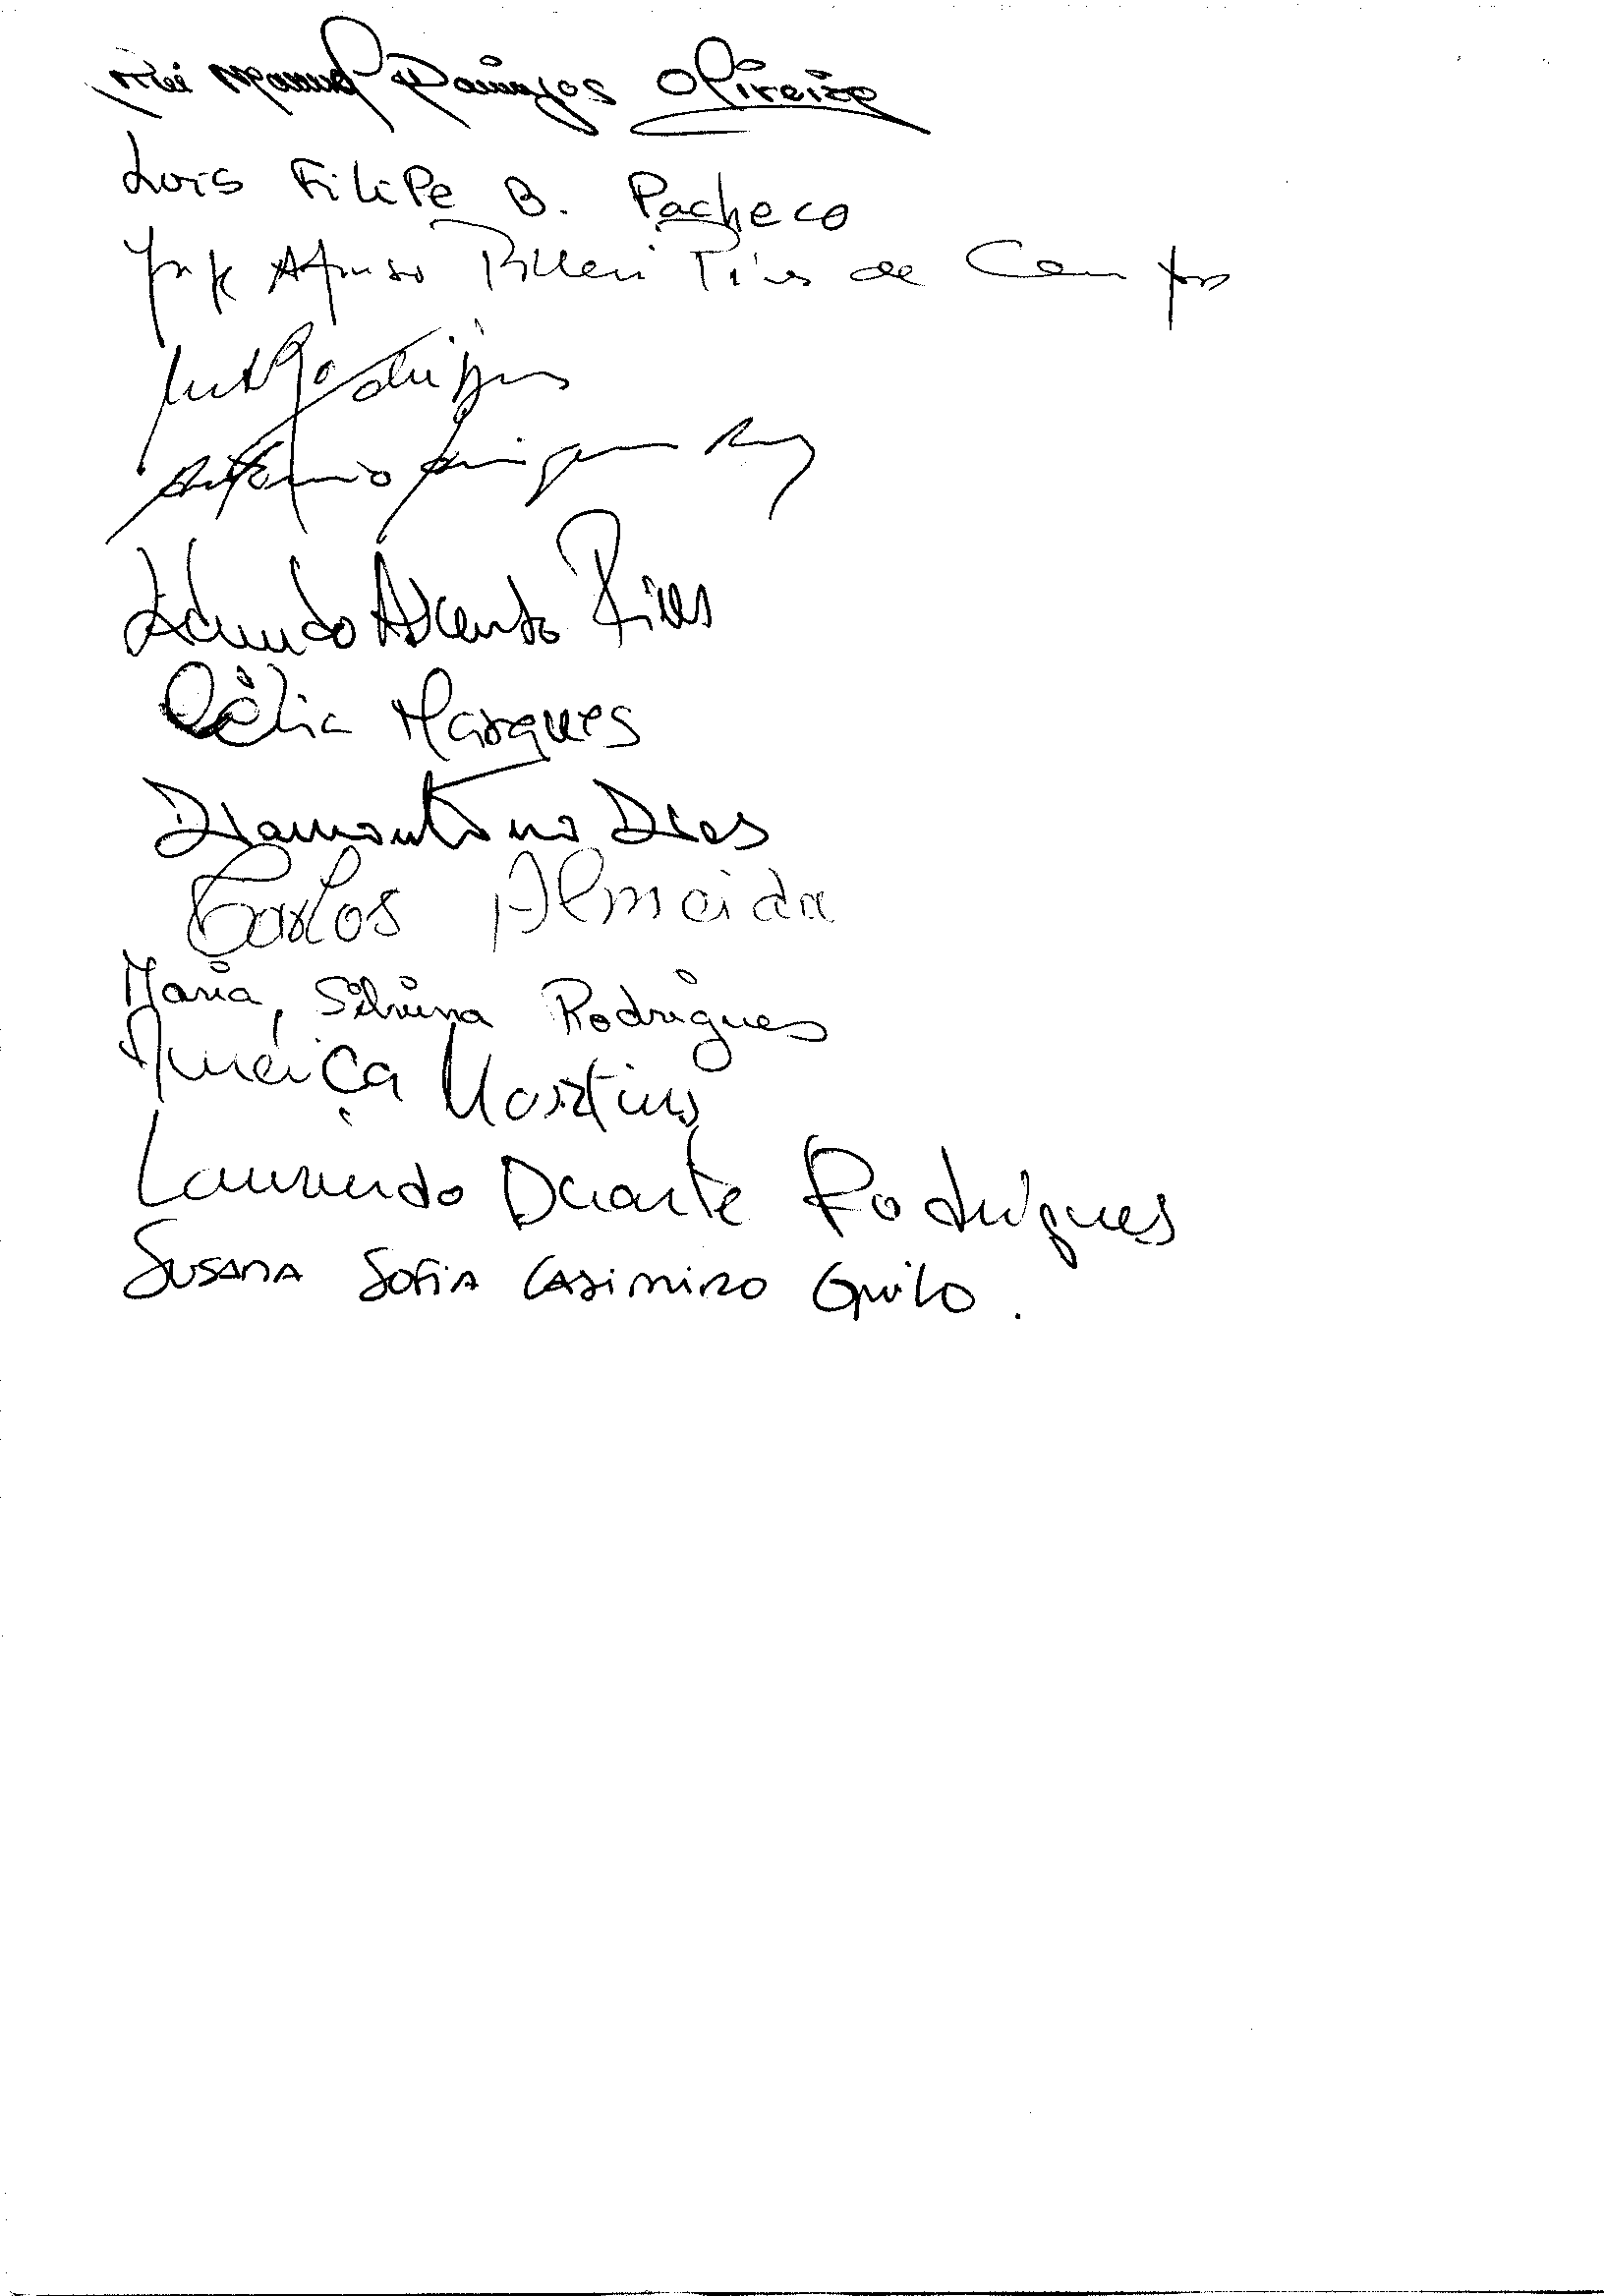 Rui Manuel Ramos Oliveira
Luis Filipe B. Pacheco
Jorge Afonso Pires de Campos
Rodrigues
António
Eduardo Pires
Célia Marques
Diamantino Dias
Carlos Almeida
Maria Silvina Rodrigues
Martins
Laurindo Duarte Rodrigues
Susana Sofia Casimiro Grilo.